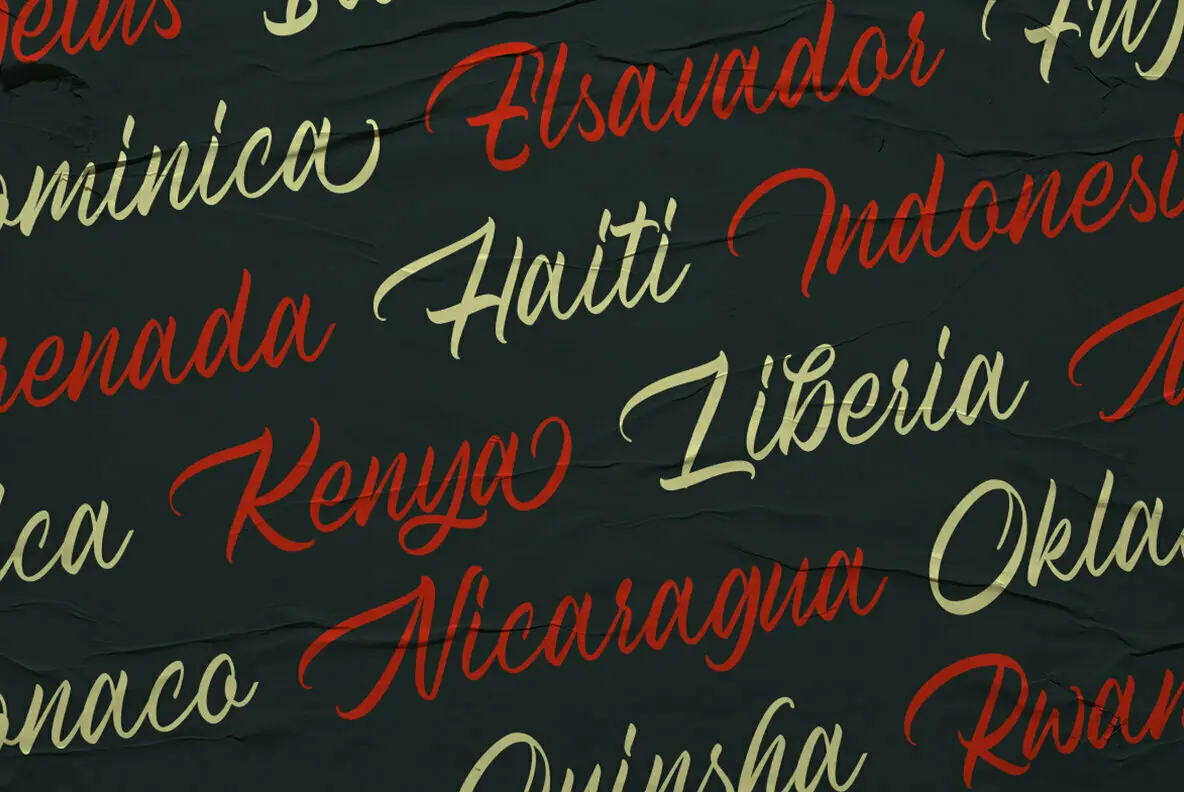 ominica Elsavador
renada Haiti Indonesi
ica Kenya Liberia
onaco Nicaragua Okla
Quinsha Rwan